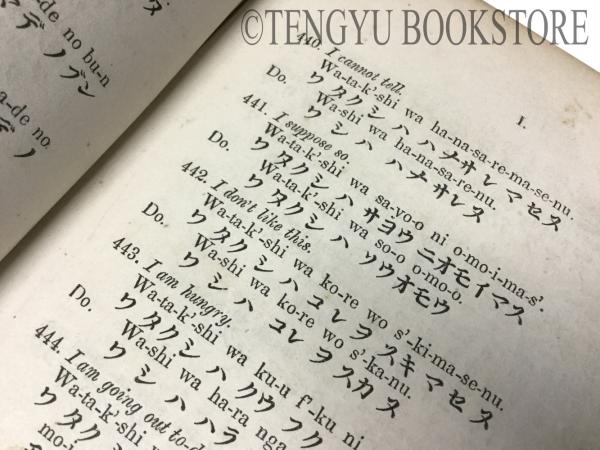 ©TENGYU BOOKSTORE
-de no bu-n
マデノブン
a-de no
マデノ
I.
440. I cannot tell.
Wa-ta-k'-shi wa ha-na-sa-re-ma-se-nu.
ワタクシハ ハナサレマセヌ
Do. Wa-shi wa ha-na-sa-re-nu.
ワシハ ハナサレヌ
441. I suppose so.
Wa-ta-k'-shi wa sa-yo-o ni o-mo-i-ma-s'.
ワタクシハ サヨウニオモイマス
Do. Wa-ta-k'-shi wa so-o o-mo-o.
ワタクシハ ソウオモウ
442. I don't like this.
Wa-ta-k'-shi wa ko-re wo s'-ki-ma-se-nu.
ワタクシハ コレヲ スキマセヌ
Do. Wa-shi wa ko-re wo s'-ka-nu.
ワシハ コレヲスカヌ
443. I am hungry.
Wa-ta-k'-shi wa ku-u f'-ku ni
ワタクシハ クウフク
Do. Wa-shi wa ha-ra nga
ワシハ ハラ
444. I am going out to-d
Wa-ta-k'-shi wa
ワタクシ
mo-